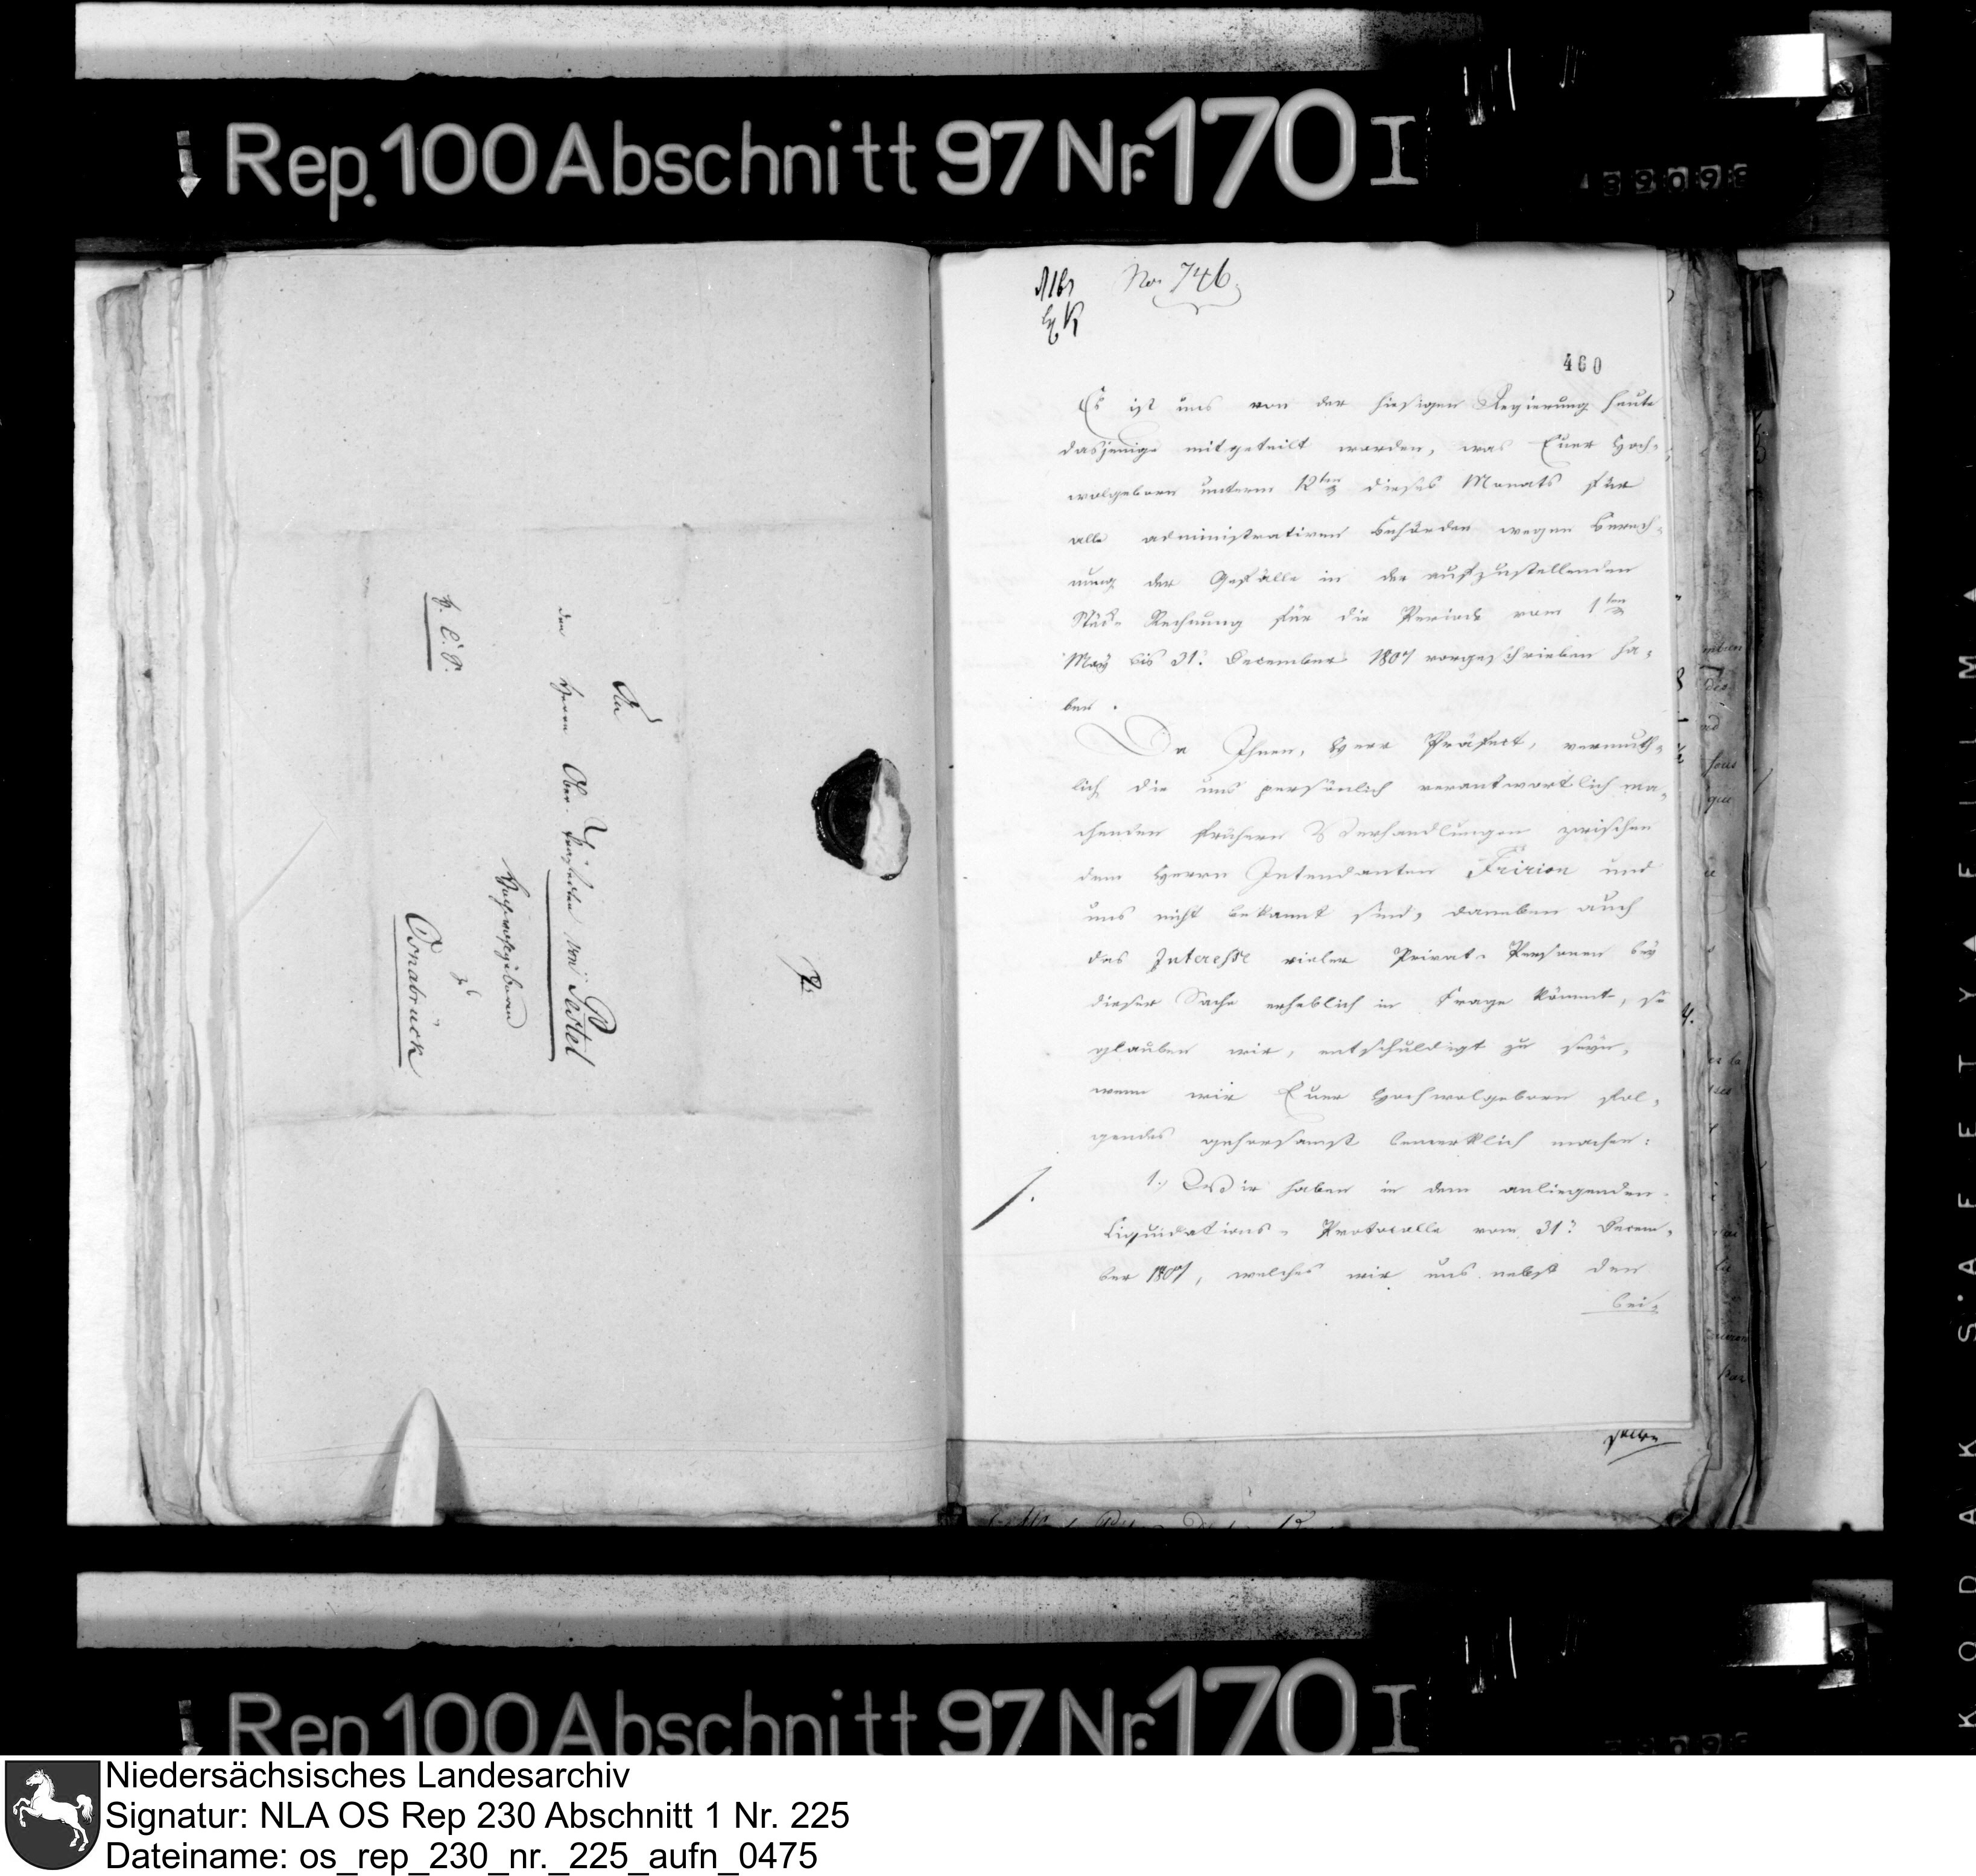 Rep. 100 Abschnitt 97 Nr. 170 I
An
den Herrn Ober-Präfecten von Pestel
Hochwolgeboren
zu
Osnabrück
No. 746.
460
Es ist uns von der hiesigen Regierung heute
dasjenige mitgeteilt worden, was Euer Hoch-
wolgeborn unterm 12ten dieses Monats für
alle administrativen Behörden wegen Berech-
nung der Gefälle in der aufzustellenden
Rechnung für die Periode vom 1ten
May bis 31. December 1807 vorgeschrieben ha-
ben.
Da Ihnen, Herr Präfect, vermuth-
lich die uns persönlich verantwortlich ma-
chenden frühern Verhandlungen zwischen
dem Herrn Intendanten Fririon und
uns nicht bekannt sind, daneben auch
das Interesse vieler Privat-Personen bey
dieser Sache erheblich in Frage kömmt, so
glauben wir, entschuldigt zu seyn,
wenn wir Euer Hochwolgeborn fol-
gendes gehorsamst bemerklich machen:
1.) Wir haben in dem anliegenden
Liquidations-Protocolle vom 31. Decem-
ber 1807, welches wir uns nebst den
bei-
Rep 100 Abschnitt 97 Nr. 170 I
KODAK S'AFETY FILM
Niedersächsisches Landesarchiv
Signatur: NLA OS Rep 230 Abschnitt 1 Nr. 225
Dateiname: os_rep_230_nr._225_aufn_0475